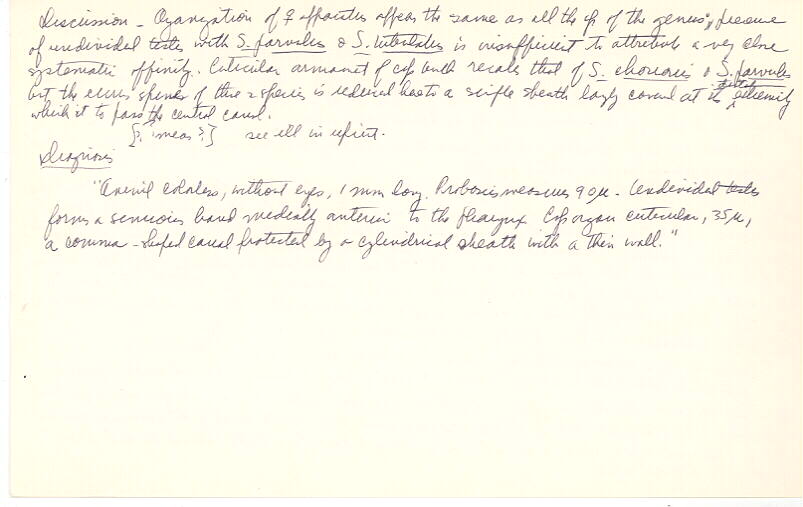 Discussion - Organization of ♀ apparatus appears the same as all the sp of the genus; presence
of undivided testes with S. parvulus & S. tubulatus is insufficient to attribute a very close
systematic affinity. Cuticular armament of cop bulb recalls that of S. & S. parvulus
but the spines of these 2 species is reduced here to a simple sheath curved at its distal extremity
which it to pass the central canal.
[? meas?] see ill in reprint.
Diagnosis
"Animal colorless, without eyes, 1 mm long. Proboscis measures 90µ. Undivided testes
forms a sinuous band medially anterior to the pharynx Cop organ cuticular, 35µ,
a comma-shaped canal protected by a cylindrical sheath with a thin wall."